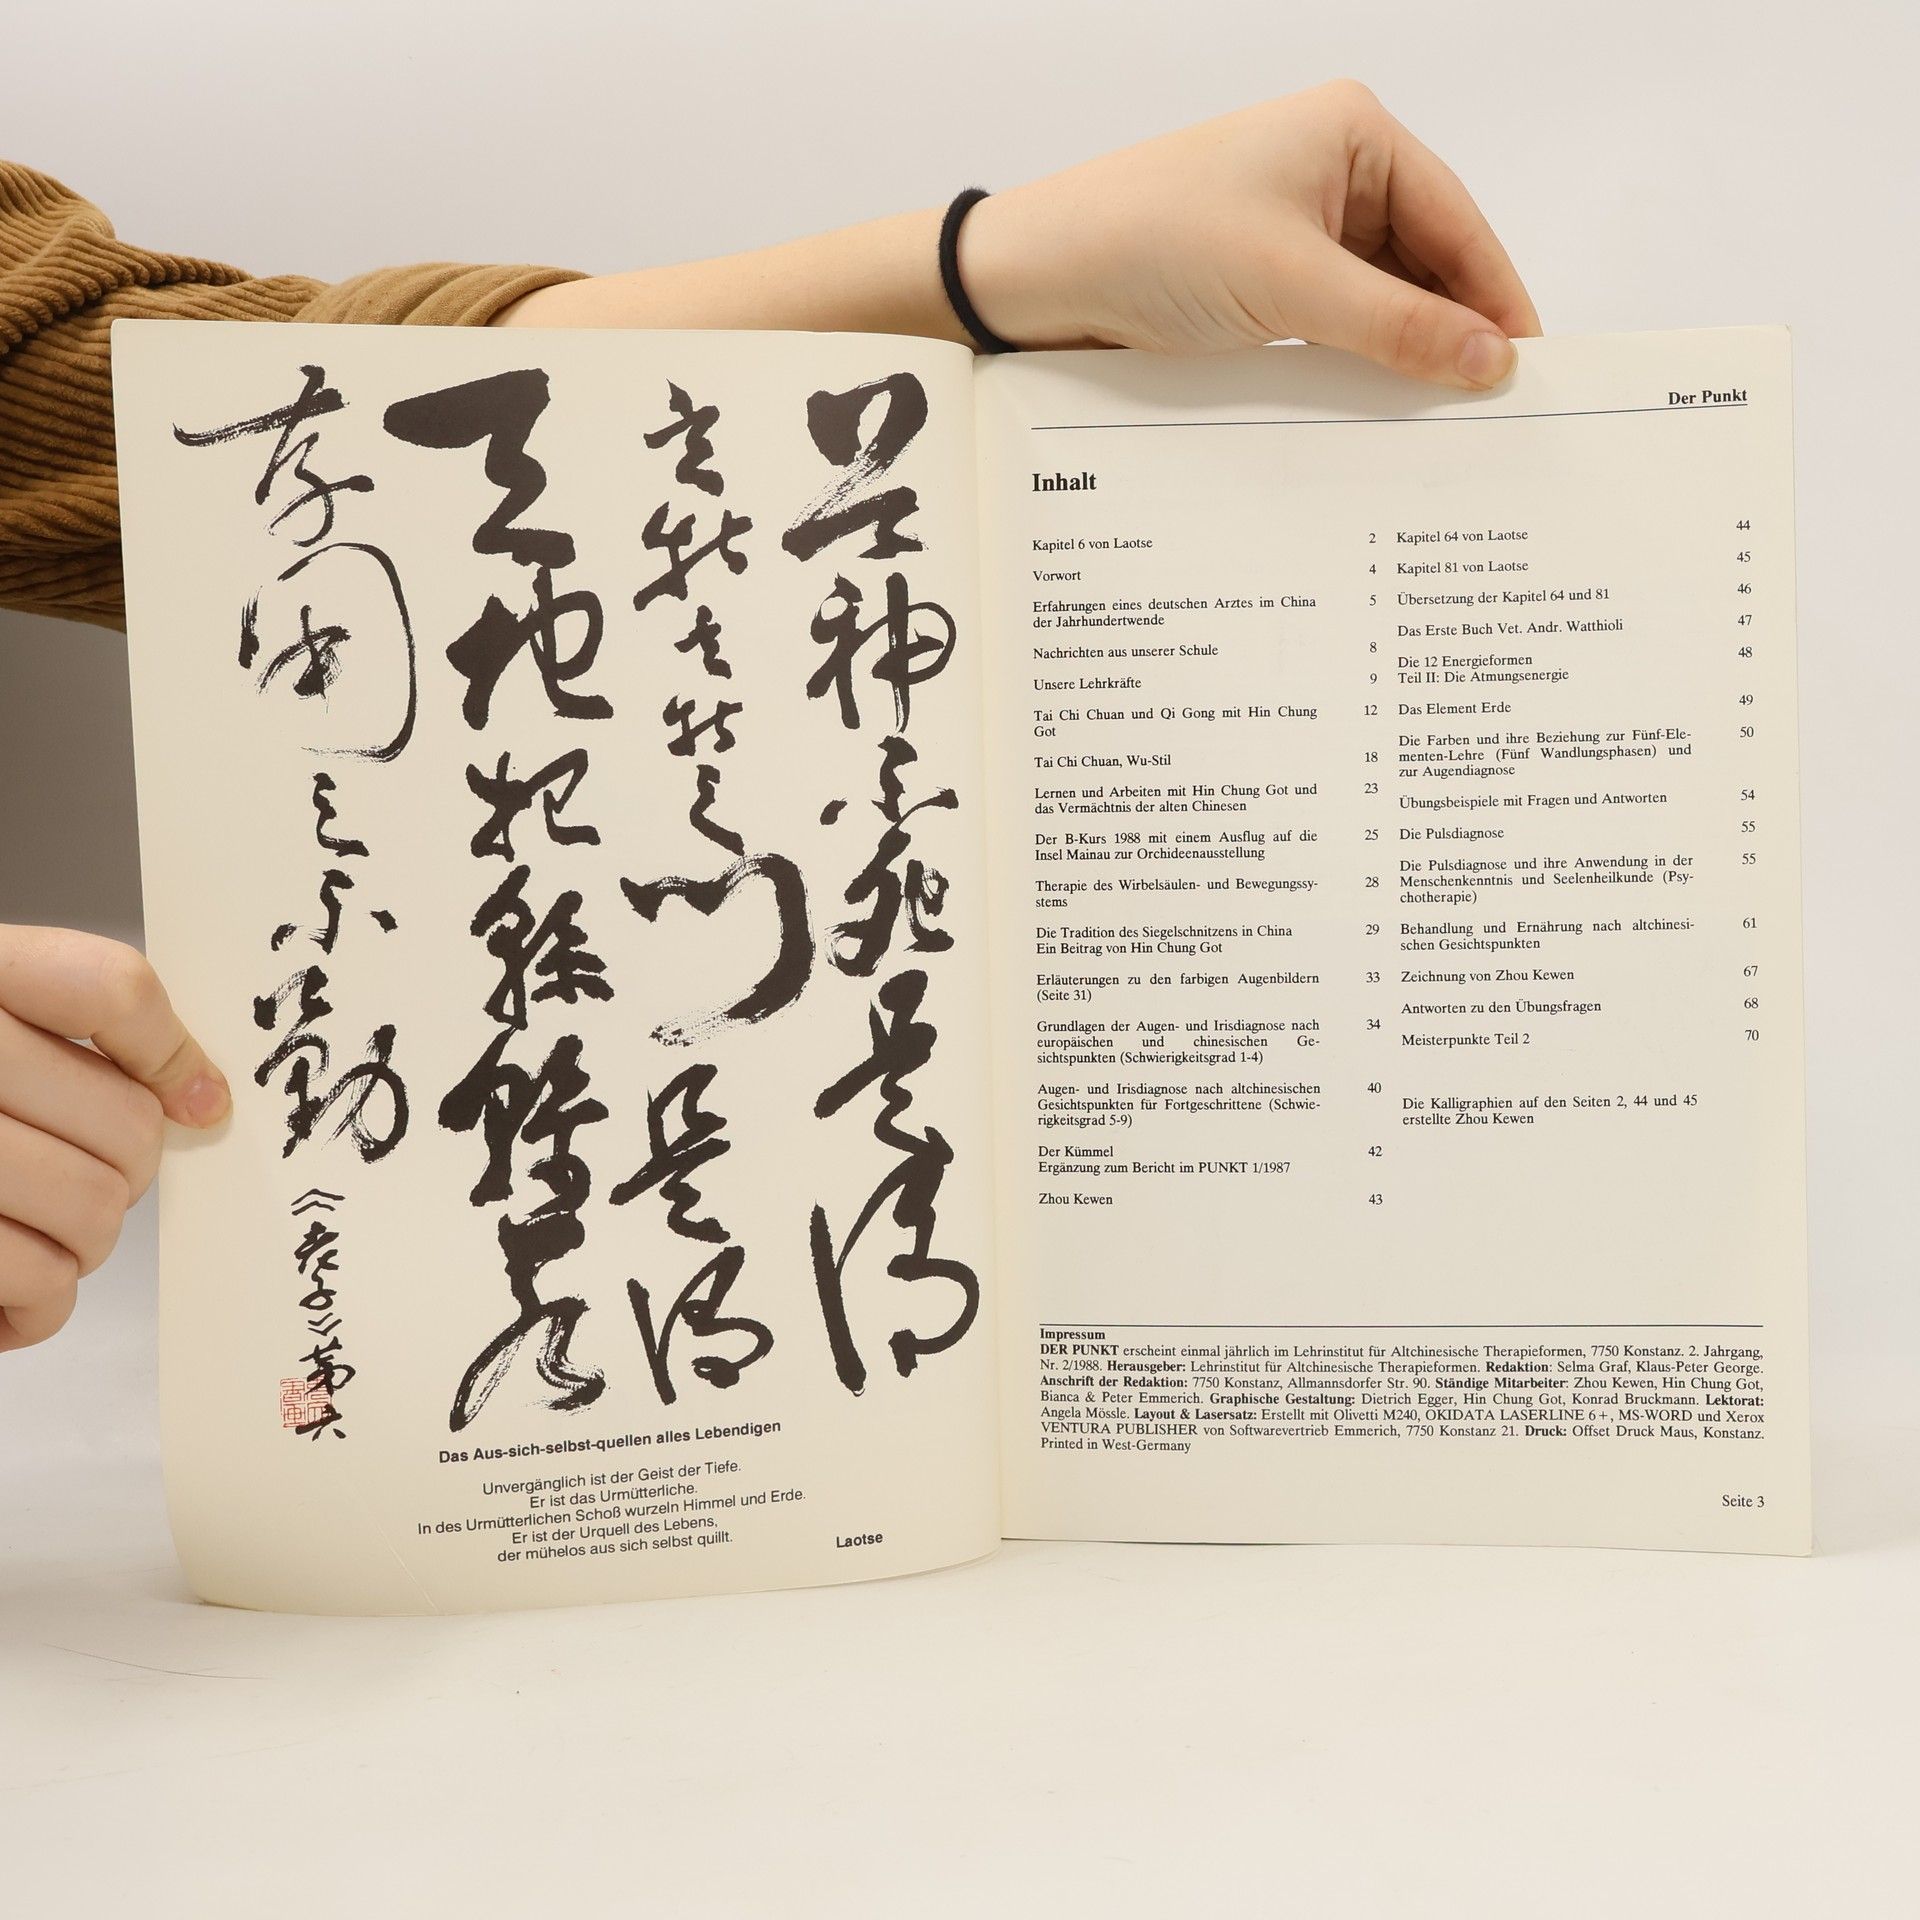 谷神不死是謂
玄牝玄牝之門是謂
天地根緜緜若
存用之不勤《老子》第六
Das Aus-sich-selbst-quellen alles Lebendigen
Unvergänglich ist der Geist der Tiefe.
Er ist das Urmütterliche.
In des Urmütterlichen Schoß wurzeln Himmel und Erde.
Er ist der Urquell des Lebens,
der mühelos aus sich selbst quillt.
Laotse
Der Punkt
Inhalt
Kapitel 6 von Laotse 2
Vorwort 4
Erfahrungen eines deutschen Arztes im China 5
der Jahrhundertwende
Nachrichten aus unserer Schule 8
Unsere Lehrkräfte 9
Tai Chi Chuan und Qi Gong mit Hin Chung 12
Got
Tai Chi Chuan, Wu-Stil 18
Lernen und Arbeiten mit Hin Chung Got und 23
das Vermächtnis der alten Chinesen
Der B-Kurs 1988 mit einem Ausflug auf die 25
Insel Mainau zur Orchideenausstellung
Therapie des Wirbelsäulen- und Bewegungssy- 28
stems
Die Tradition des Siegelschnitzens in China 29
Ein Beitrag von Hin Chung Got
Erläuterungen zu den farbigen Augenbildern 33
(Seite 31)
Grundlagen der Augen- und Irisdiagnose nach 34
europäischen und chinesischen Ge-
sichtspunkten (Schwierigkeitsgrad 1-4)
Augen- und Irisdiagnose nach altchinesischen 40
Gesichtspunkten für Fortgeschrittene (Schwie-
rigkeitsgrad 5-9)
Der Kümmel 42
Ergänzung zum Bericht im PUNKT 1/1987
Zhou Kewen 43
Kapitel 64 von Laotse 44
Kapitel 81 von Laotse 45
Übersetzung der Kapitel 64 und 81 46
Das Erste Buch Vet. Andr. Watthioli 47
Die 12 Energieformen 48
Teil II: Die Atmungsenergie
Das Element Erde 49
Die Farben und ihre Beziehung zur Fünf-Ele- 50
menten-Lehre (Fünf Wandlungsphasen) und
zur Augendiagnose
Übungsbeispiele mit Fragen und Antworten 54
Die Pulsdiagnose 55
Die Pulsdiagnose und ihre Anwendung in der 55
Menschenkenntnis und Seelenheilkunde (Psy-
chotherapie)
Behandlung und Ernährung nach altchinesi- 61
schen Gesichtspunkten
Zeichnung von Zhou Kewen 67
Antworten zu den Übungsfragen 68
Meisterpunkte Teil 2 70
Die Kalligraphien auf den Seiten 2, 44 und 45
erstellte Zhou Kewen
Impressum
DER PUNKT erscheint einmal jährlich im Lehrinstitut für Altchinesische Therapieformen, 7750 Konstanz. 2. Jahrgang,
Nr. 2/1988. Herausgeber: Lehrinstitut für Altchinesische Therapieformen. Redaktion: Selma Graf, Klaus-Peter George.
Anschrift der Redaktion: 7750 Konstanz, Allmannsdorfer Str. 90. Ständige Mitarbeiter: Zhou Kewen, Hin Chung Got,
Bianca & Peter Emmerich. Graphische Gestaltung: Dietrich Egger, Hin Chung Got, Konrad Bruckmann. Lektorat:
Angela Mössle. Layout & Lasersatz: Erstellt mit Olivetti M240, OKIDATA LASERLINE 6+, MS-WORD und Xerox
VENTURA PUBLISHER von Softwarevertrieb Emmerich, 7750 Konstanz 21. Druck: Offset Druck Maus, Konstanz.
Printed in West-Germany
Seite 3